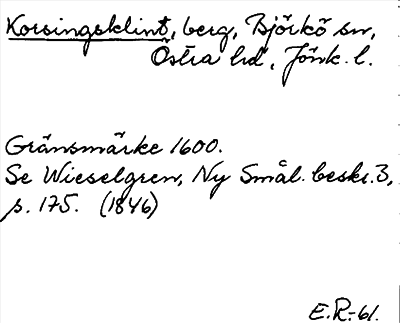 Korsingsklint, berg, Björkö sn,
Östra hd, Jönk. l.
Gränsmärke 1600.
Se Wieselgren, Ny Smål. beskr. 3,
s. 175. (1846)
E.R.-61.